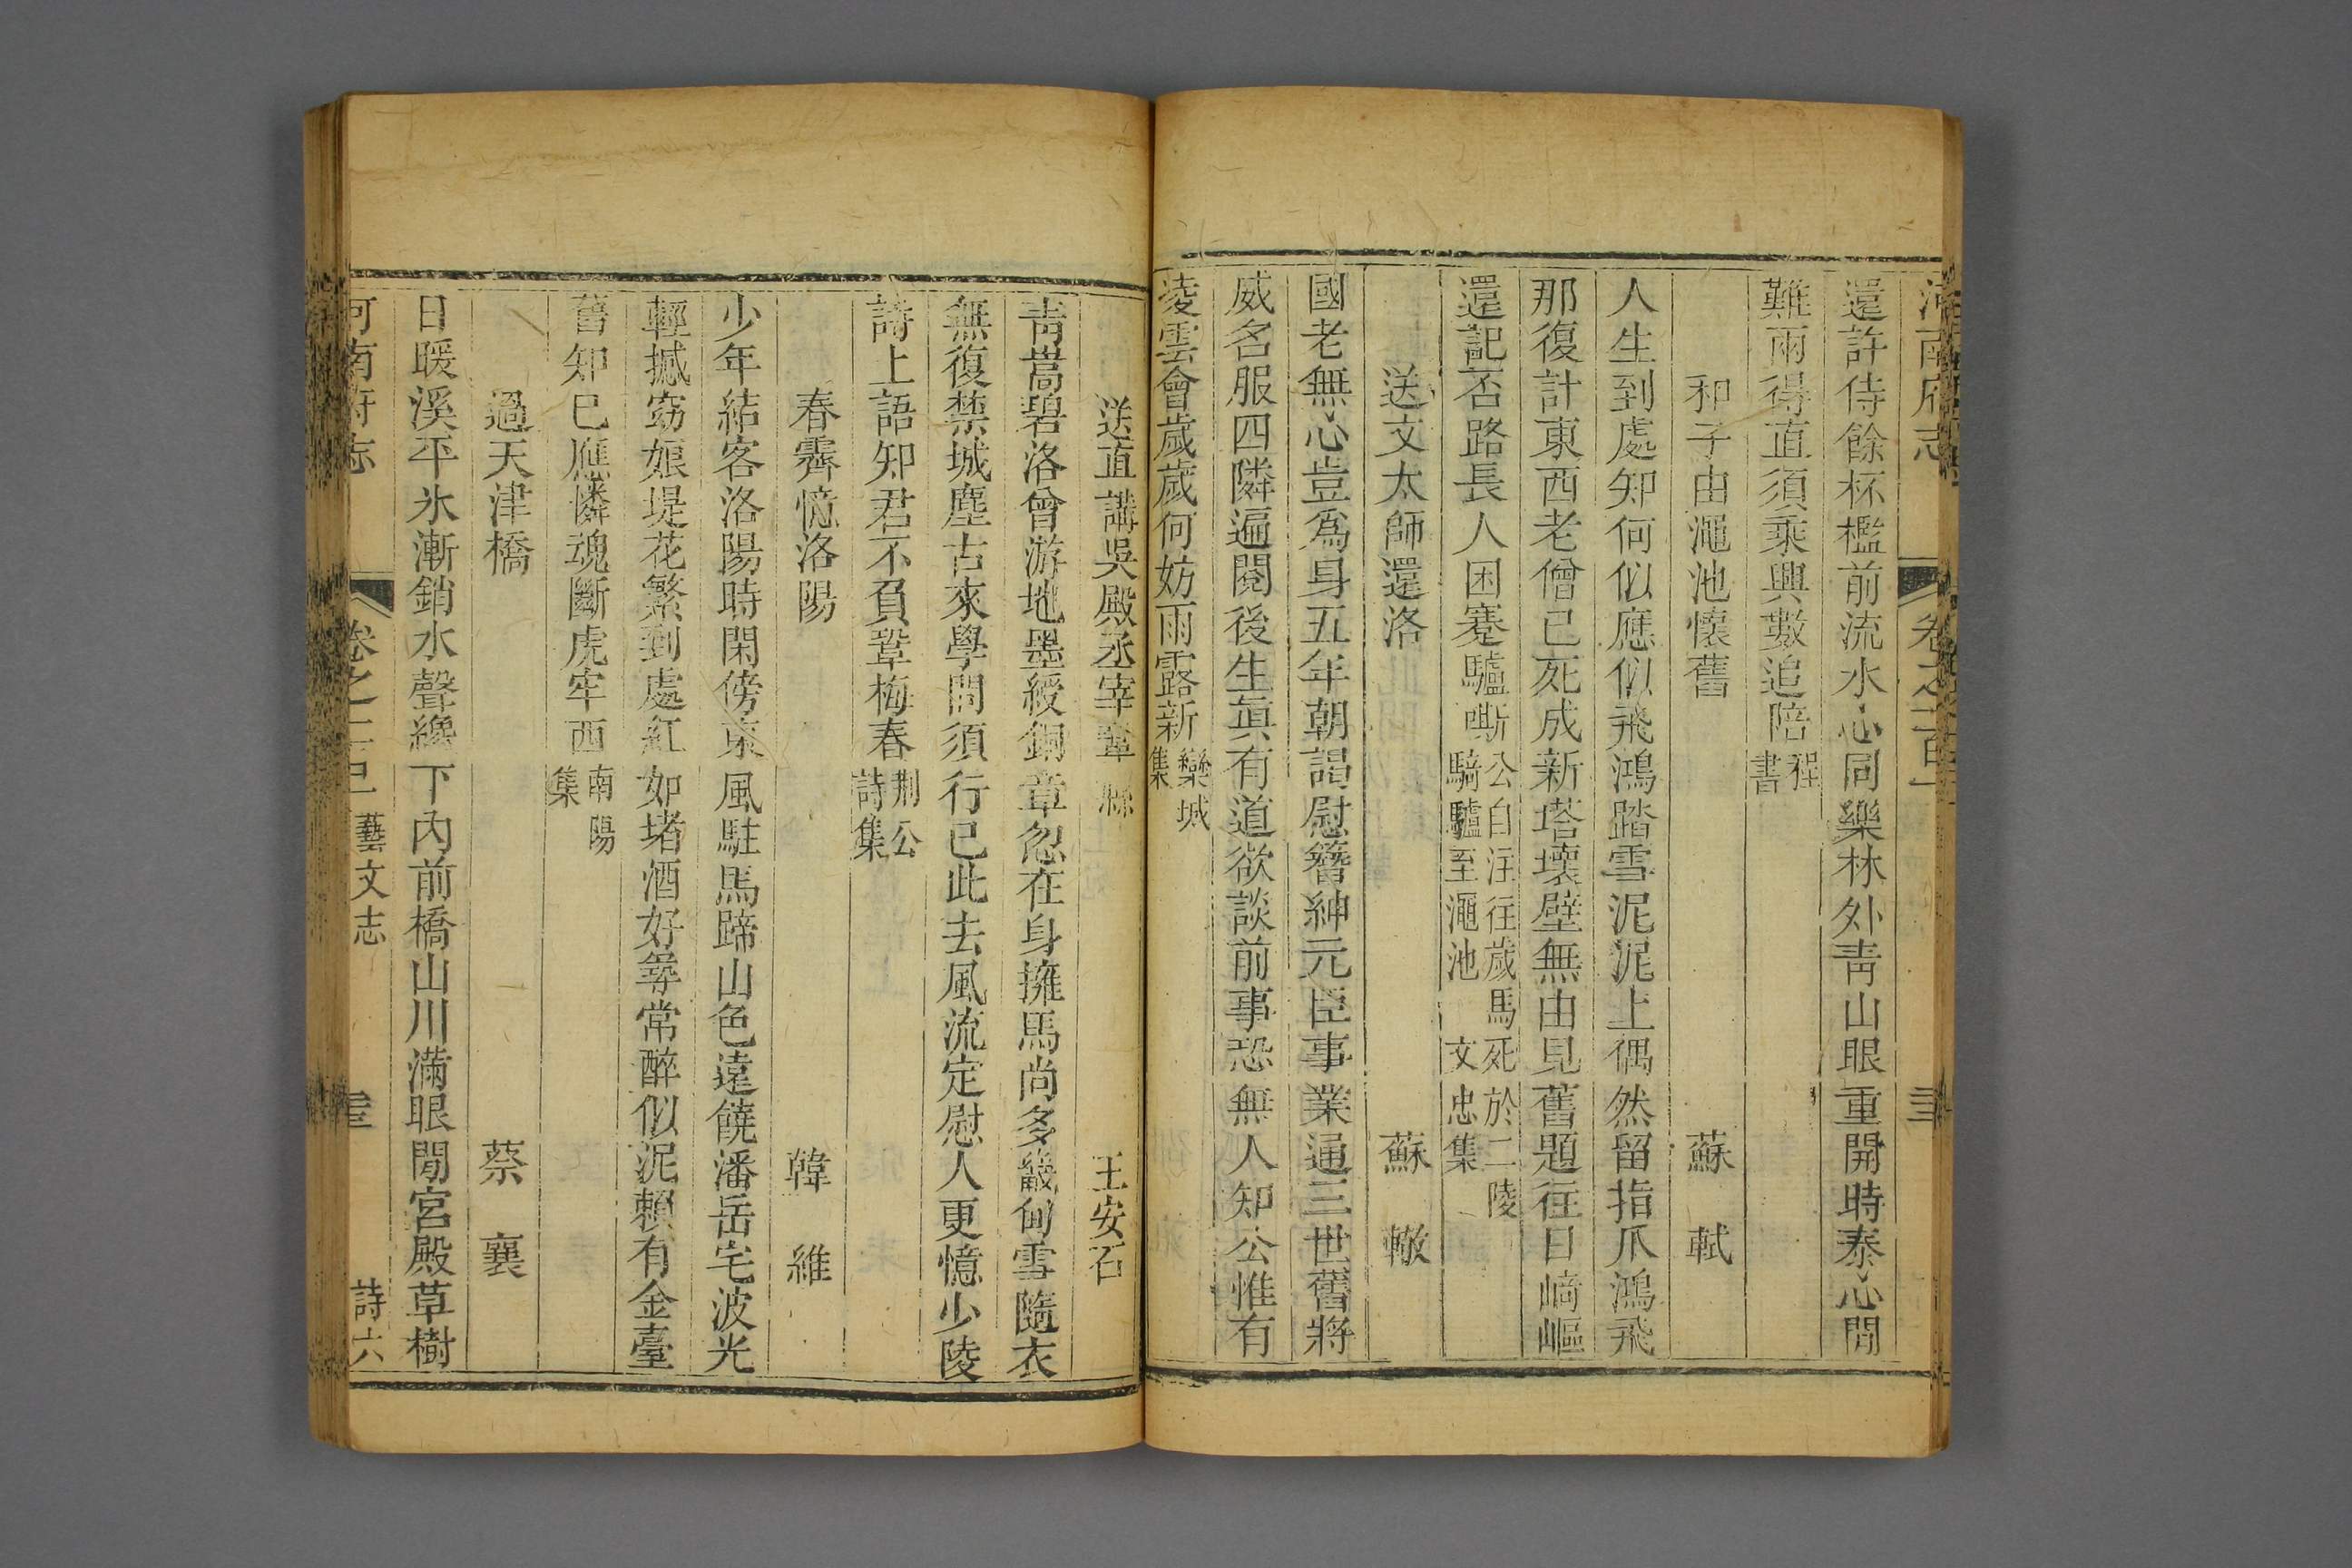 河南府志 卷之一百
還許侍餘杯檻前流水心同樂林外青山眼重開時泰心閒
難兩得直須乘興數追陪程書
和子由澠池懷舊 蘇軾
人生到處知何似應似飛鴻踏雪泥泥上偶然留指爪鴻飛
那復計東西老僧已死成新塔壞壁無由見舊題往日崎嶇
還記否路長人困蹇驢嘶公自注往歲馬死於二陵騎驢至澠池 文忠集
送文太師還洛 蘇轍
國老無心豈爲身五年朝謁慰簪紳元臣事業通三世舊將
威名服四隣遍閱後生眞有道欲談前事恐無人知公惟有
凌雲會歲歲何妨雨露新欒城集
送直講吳殿丞宰鞏縣 王安石
靑嵩碧洛曾游地墨綬銅章忽在身擁馬尚多畿甸雪隨衣
無復禁城塵古來學問須行已此去風流定慰人更憶少陵
詩上語知君不負鞏梅春荆公詩集
春霽憶洛陽 韓維
少年結客洛陽時閑傍東風駐馬蹄山色遠饒潘岳宅波光
輕撼窈娘堤花繁到處紅如堵酒好尋常醉似泥賴有金臺
舊知已應憐魂斷虎牢西南陽集
過天津橋 蔡襄
日暖溪平氷漸銷水聲纔下內前橋山川滿眼閒宮殿草樹
河南府志 卷之一百 藝文志 詩六